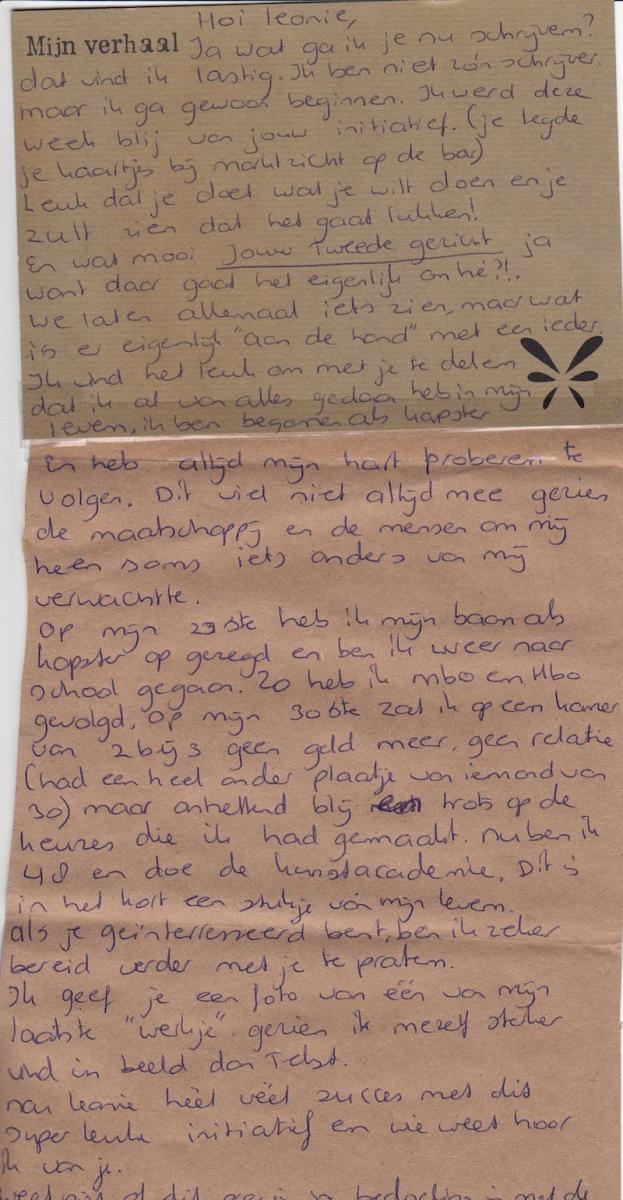 Hoi leonie,
Mijn verhaal Ja wat ga ik je nu schrijven?
dat vind ik lastig. Ik ben niet zo'n schrijver.
maar ik ga gewoon beginnen. Ik werd deze
week blij van jouw initiatief. (je legde
je kaartjes bij marktzicht op de bar)
Leuk dat je doet wat je wilt doen en je
zult zien dat het gaat lukken!
En wat mooi Jouw Tweede gezicht ja
want daar gaat het eigenlijk om hé?!.
we laten allemaal iets zien, maar wat
is er eigenlijk "aan de hand" met een ieder.
Ik vind het leuk om met je te delen
dat ik al van alles gedaan heb in mijn
leven, ik ben begonnen als kapster
En heb altijd mijn hart proberen te
volgen. Dit viel niet altijd mee gezien
de maatschappij en de mensen om mij
heen soms iets anders van mij
verwachtte.
Op mijn 23ste heb ik mijn baan als
kapster op gezegd en ben ik weer naar
school gegaan. Zo heb ik mbo en Hbo
gevolgd. Op mijn 30ste zat ik op een kamer
van 2 bij 3 geen geld meer, geen relatie
(had een heel ander plaatje van iemand van
30) maar ontzettend blij en trots op de
keuzes die ik had gemaakt. nu ben ik
48 en doe de kunstacademie. Dit is
in het kort een stukje van mijn leven.
als je geïnterresseerd bent, ben ik zeker
bereid verder met je te praten.
Ik geef je een foto van één van mijn
laatste "werkje" gezien ik mezelf sterker
vind in beeld dan Tekst.
nou leonie héél véél succes met dit
super leuke initiatief en wie weet hoor
ik van je.
weet niet of dit